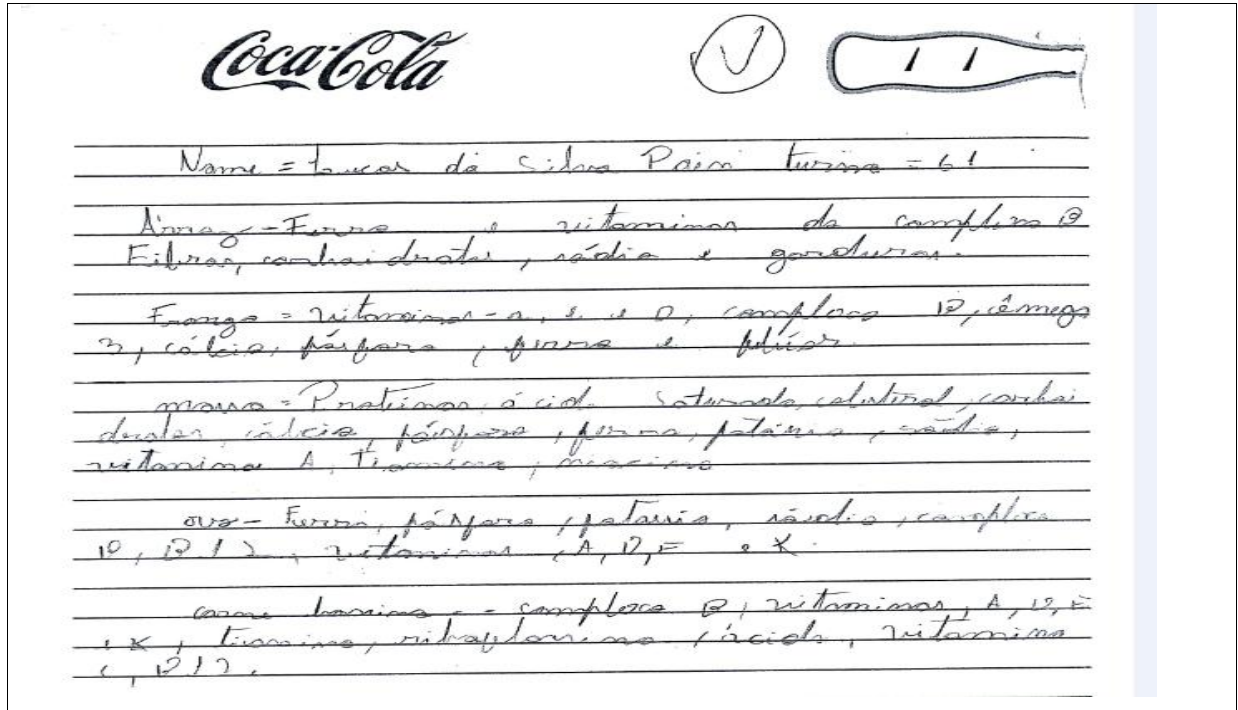 Coca-Cola
Nome = Lucas da Silva Paim turma = 61
Arroz - Ferro e vitaminas do complexo B
Fibras, carboidratos, sódio e gorduras.
Frango = vitaminas - a, e e D, complexo B, ômega
3, cálcio, fósforo, ferro e
massa = Proteinas, ácido saturado, colesterol, carboi
dratos, cálcio, fósforo, ferro, potássio, sódio,
vitamina A, Tiamina, niacina
ovo - Ferro, fósforo, potassio, sódio, complexo
B, B12, vitaminas, A, D, E e K.
carne bovina - - complexo B, vitaminas, A, D, E
e K, tiamina, riboflavina, ácido, vitamina
C, B12.